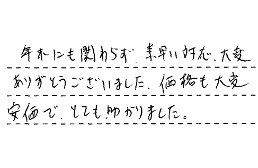 年末にも関わらず、素早い対応、大変
ありがとうございました。価格も大変
安価で、とても助かりました。